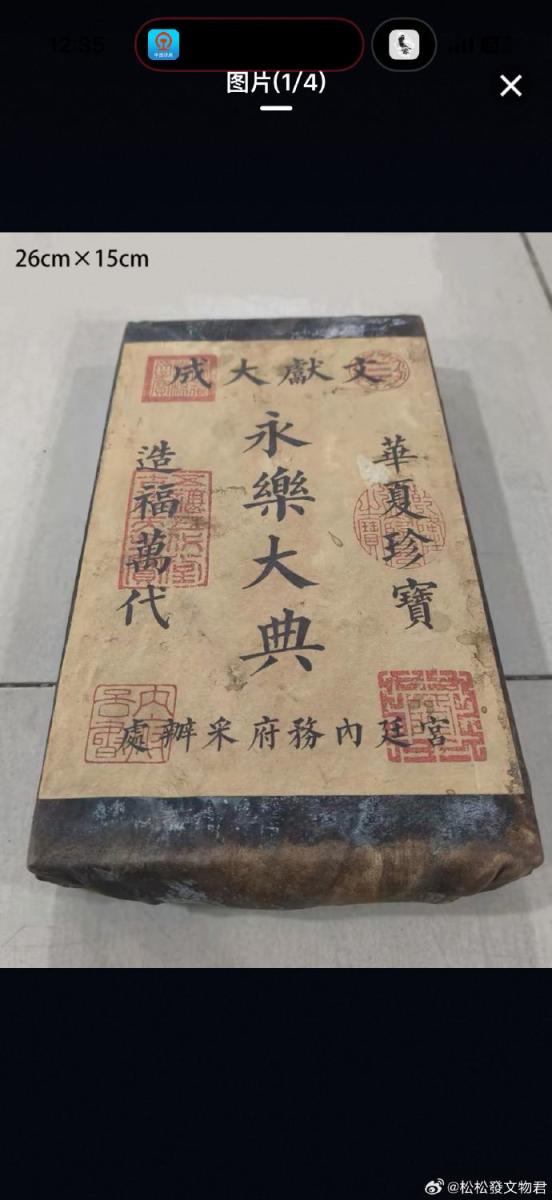 12:35
中国铁路
图片(1/4)
26cm×15cm
文獻大成
華夏珍寶
永樂大典
造福萬代
宮廷內務府采辦處
@松松發文物君